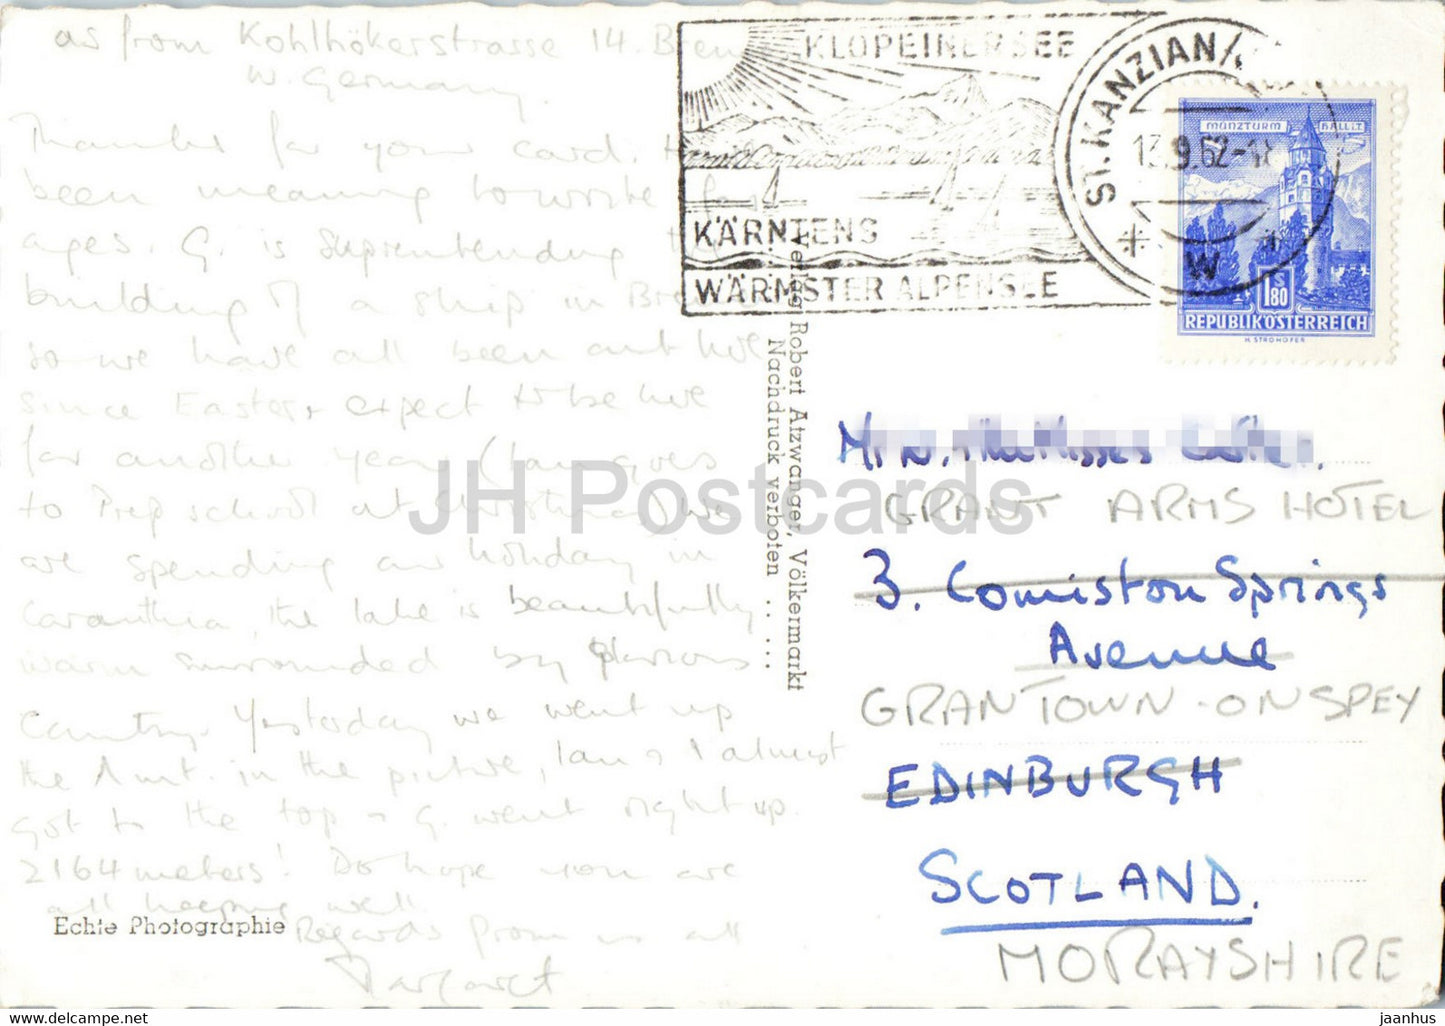 as from Kohlhökerstrasse 14. Brem
W. Germany.
Thanks for your card.
been meaning to write for
ages. G. is Suprentending
building of a ship in Bre
so we have all been out here
since Easter, + expect to be here
for another year (Ian goes
to Prep school at Christmas) we
are spending our holiday in
Caranthia, the lake is beautifully
warm surrounded by glorious
Country. Yesterday we went up
the Amt. in the picture, Ian & I almost
got to the top & G. went right up.
2164 meters! Do hope you are
all keeping well.
Regards from us all
Margaret
Echte Photographie
Verlag Robert Atzwanger, Völkermarkt
Nachdruck verboten .. ...
KLOPEINERSEE
KÄRNTENS
WÄRMSTER ALPENSEE
ST. KANZIAN/
13.9.62-18
* W *
MÜNZTURM HALL I.T.
S 1.80
REPUBLIK ÖSTERREICH
H. STROHOFER
GRANT ARMS HOTEL
3. Comiston Springs
Avenue
GRANTOWN-ON SPEY
EDINBURGH
SCOTLAND.
MORAYSHIRE
JH Postcards
https://jaanhus.com jaanhus